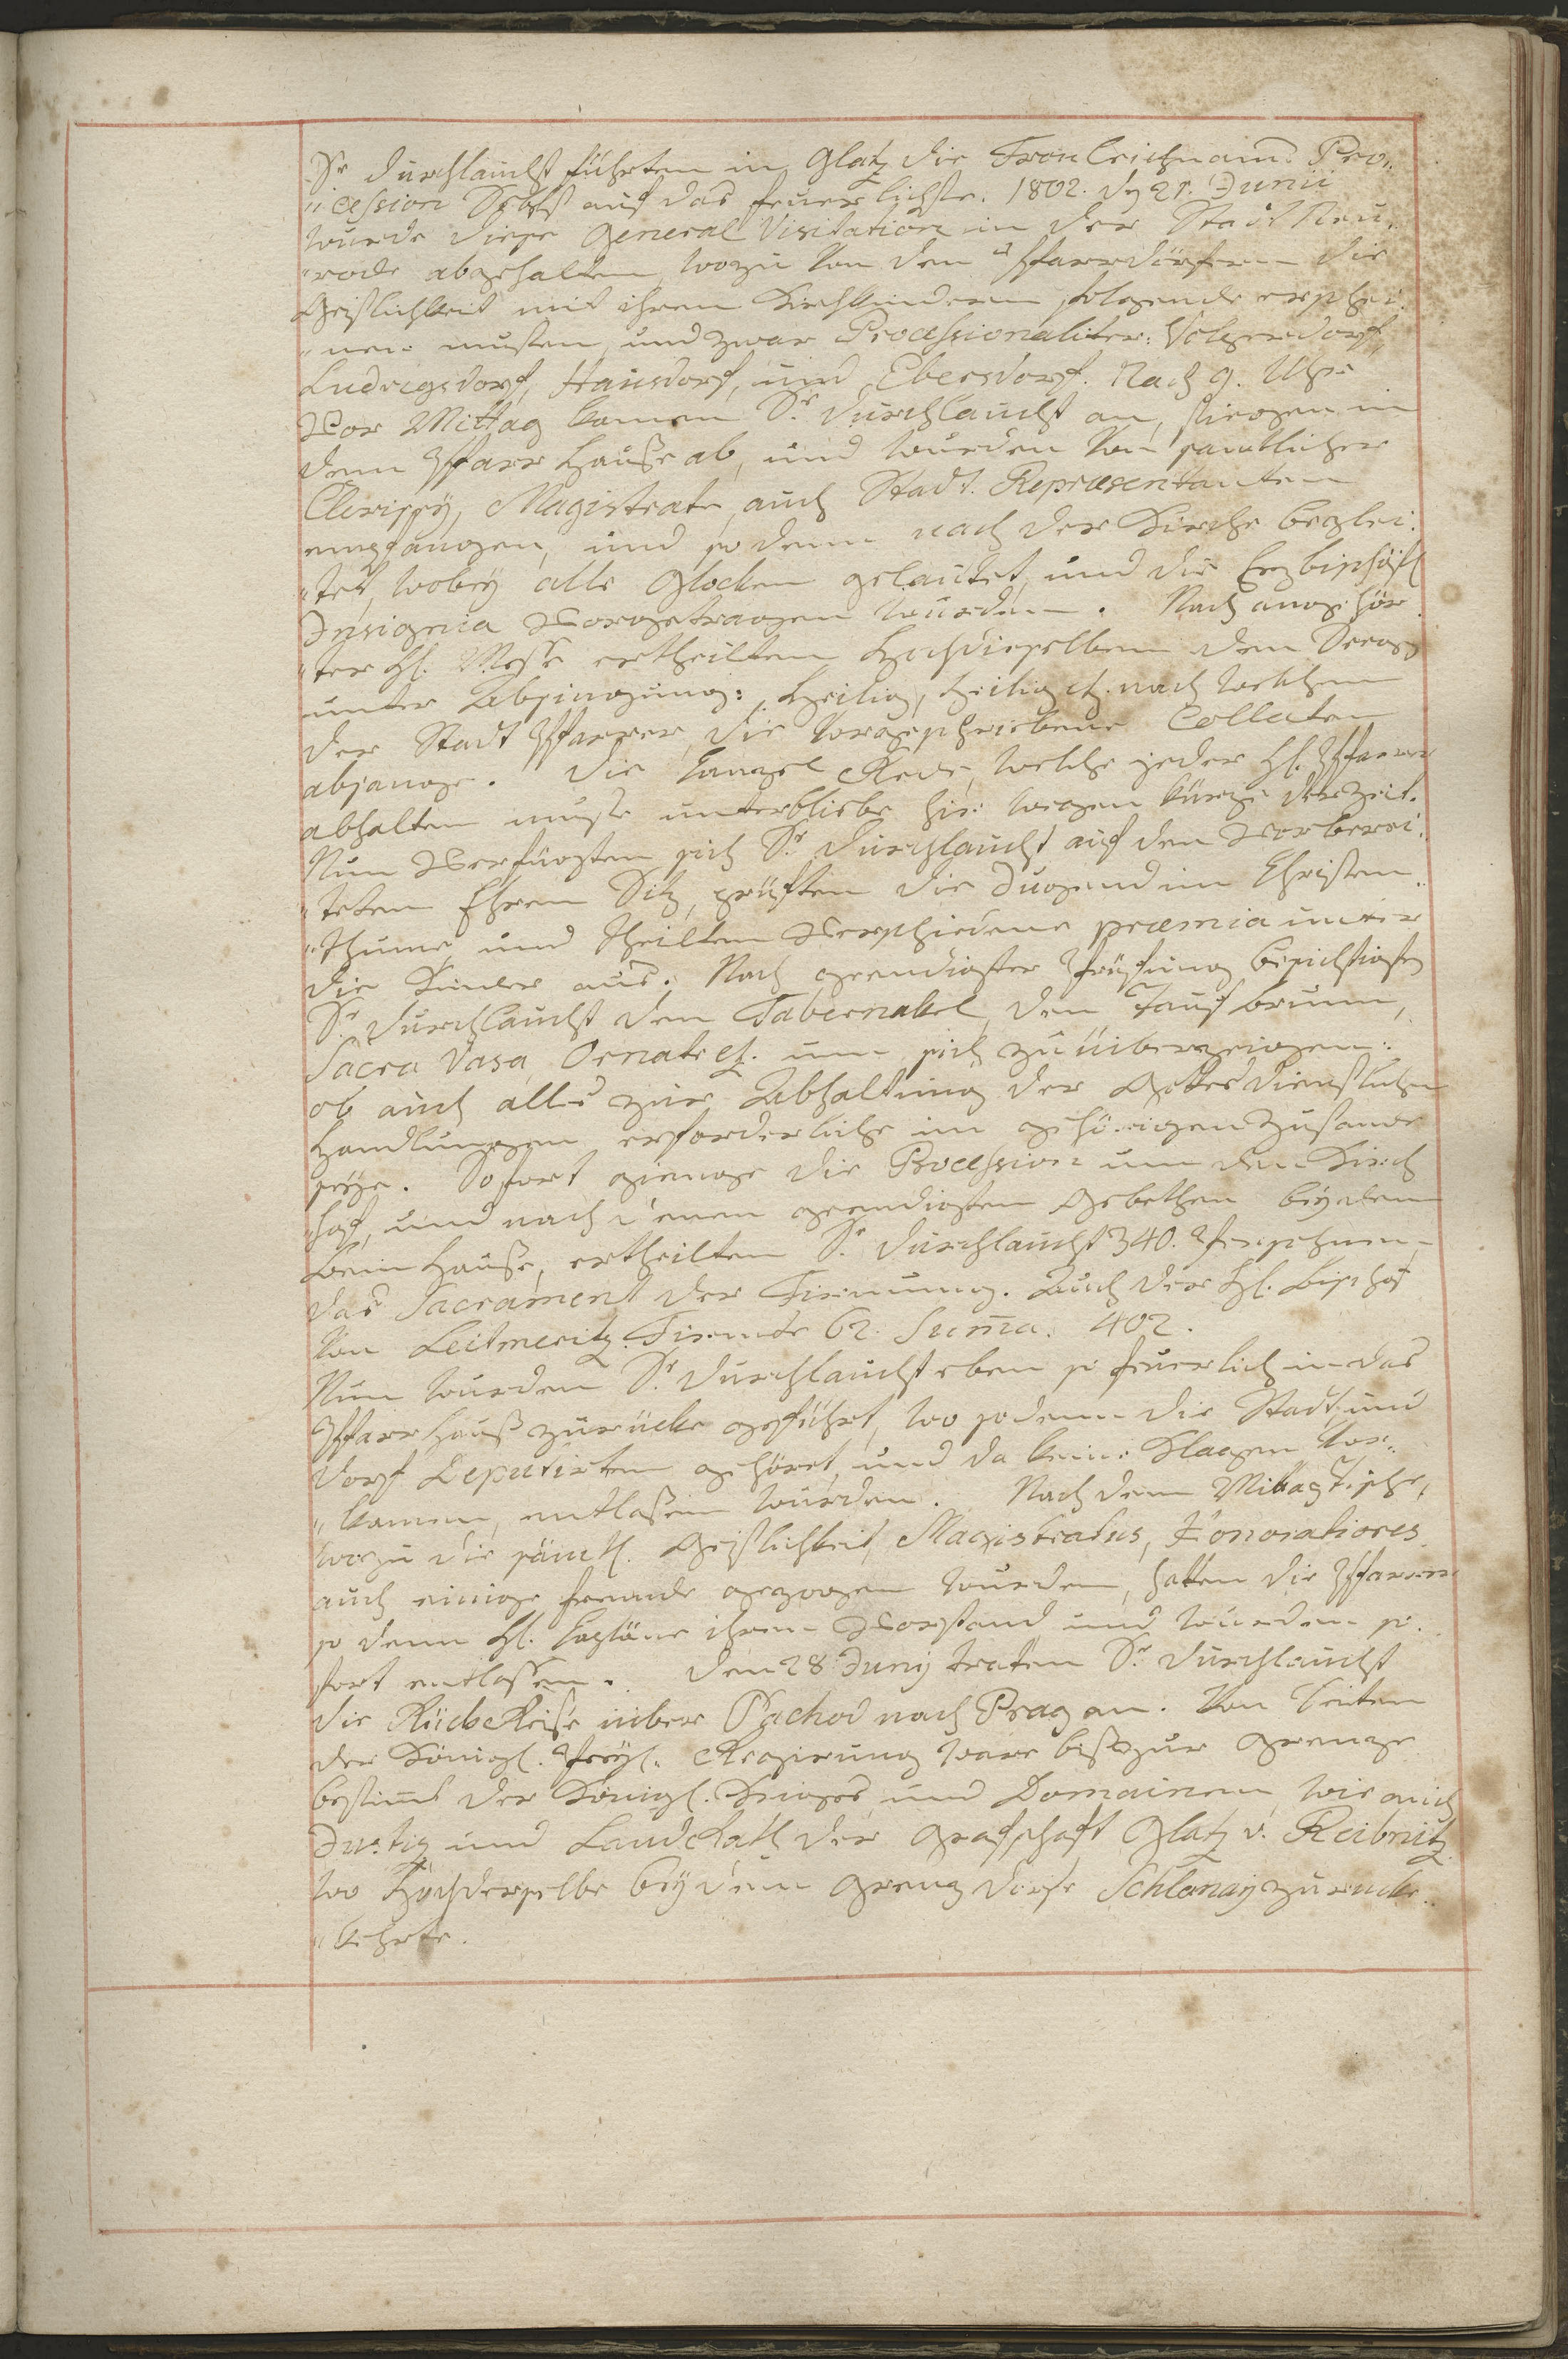 Sr Durchlaucht führten in Glatz die Fronleichnams Pro„
„cession Selbst auf das feuerlichste. 1802. dn 21. Junii
wurde diese General Visitation in der Stadt Neu„
„rode abgehalten, wozu von den Pfarrdörfern die
Geistlichkeit mit ihren Kirchkindern folgende erschei„
„nen musten, und zwar Processionaliter: Volpersdorf,
Ludwigsdorf, Hausdorf, und Ebersdorf. Nach 9. Uhr
Vor Mittag kamen Sr. Durchlaucht an, stiegen in
dem Pfarr Hauße ab, und wurden von samtlicher
Clerisey, Magistrate, auch Stadt. Repræsentanten
empfangen, und so denn nach der Kirche beglei„
„tet, wobey alle Glocken gelautet, und die Erzbischöfl
Insignia Vorgetragen wurden. Nach angehör„
„ter hl. Messe ertheilten Hochdieselben den Seegen
unter Absingung: Heilig, heilig etz. nach welchem
der Stadt Pfarrer, die Vorgeschriebene Collecten
absange. Die Kanzel Rede, welche jeder H. Pfarrer
abhalten muste unterbliebe hir wegen kürze der Zeit.
Nun Verfügten sich Sr. Durchlaucht auf den Vorberei„
„teten Ehren Sitz, prüften die Jugend im Christen„
„thume, und theilten Verschiedene præmia unter
die Kinder aus. Nach geendigter Prüfung besichtigten
Sr. Durchlaucht den Tabernakel, den Taufbrunn,
Sacra Vasa, Ornate etz. um sich zu überzeigen:
ob auch alles zur Abhaltung der Gottesdienstlichen
Handlungen erforderliche im gehörigen Zustande
seye. Sofort gienge die Procession um den Kirch
hof, und nach denen geendigten Gebethen beym
Bein Hauße, ertheilten Sr. Durchlaucht 340. Personen
das Sacrament der Firmung. Auch der H. Bischof
von Leitmeritz. Firmte 62. Suma. 402.
Nun wurden Sr. Durchlaucht eben so feuerlich in das
Pfarr Hauß zurücke geführt, wo sodenn die Stadt und
Dorf Deputirten gehöret, und da keine Klagen vor„
„kamen, entlaßen wurden. Nach dem Mittag Tische,
wozu die sämtl. Geistlichkeit, Magistratus, Honoratiores
auch einige fremde gezogen wurden, hatten die Pfarrer
so denn H. Capläne ihren Vorstand und wurden so„
fort entlassen. Den 28 Junij traten Sr. Durchlaucht
die Rück Reise über Nachod nach Prag an. Von Seiten
der Königl. Preyß. Regirung ware biß zur Grenze
bestimt der Königl. Krieges und Domainen, wie auch
Justiz und Land Rath der Grafschaft Glatz v. Reibnitz
wo Hochderselbe bey dem Grenz Dorfe Schlaney zurücke„
„kehrte.